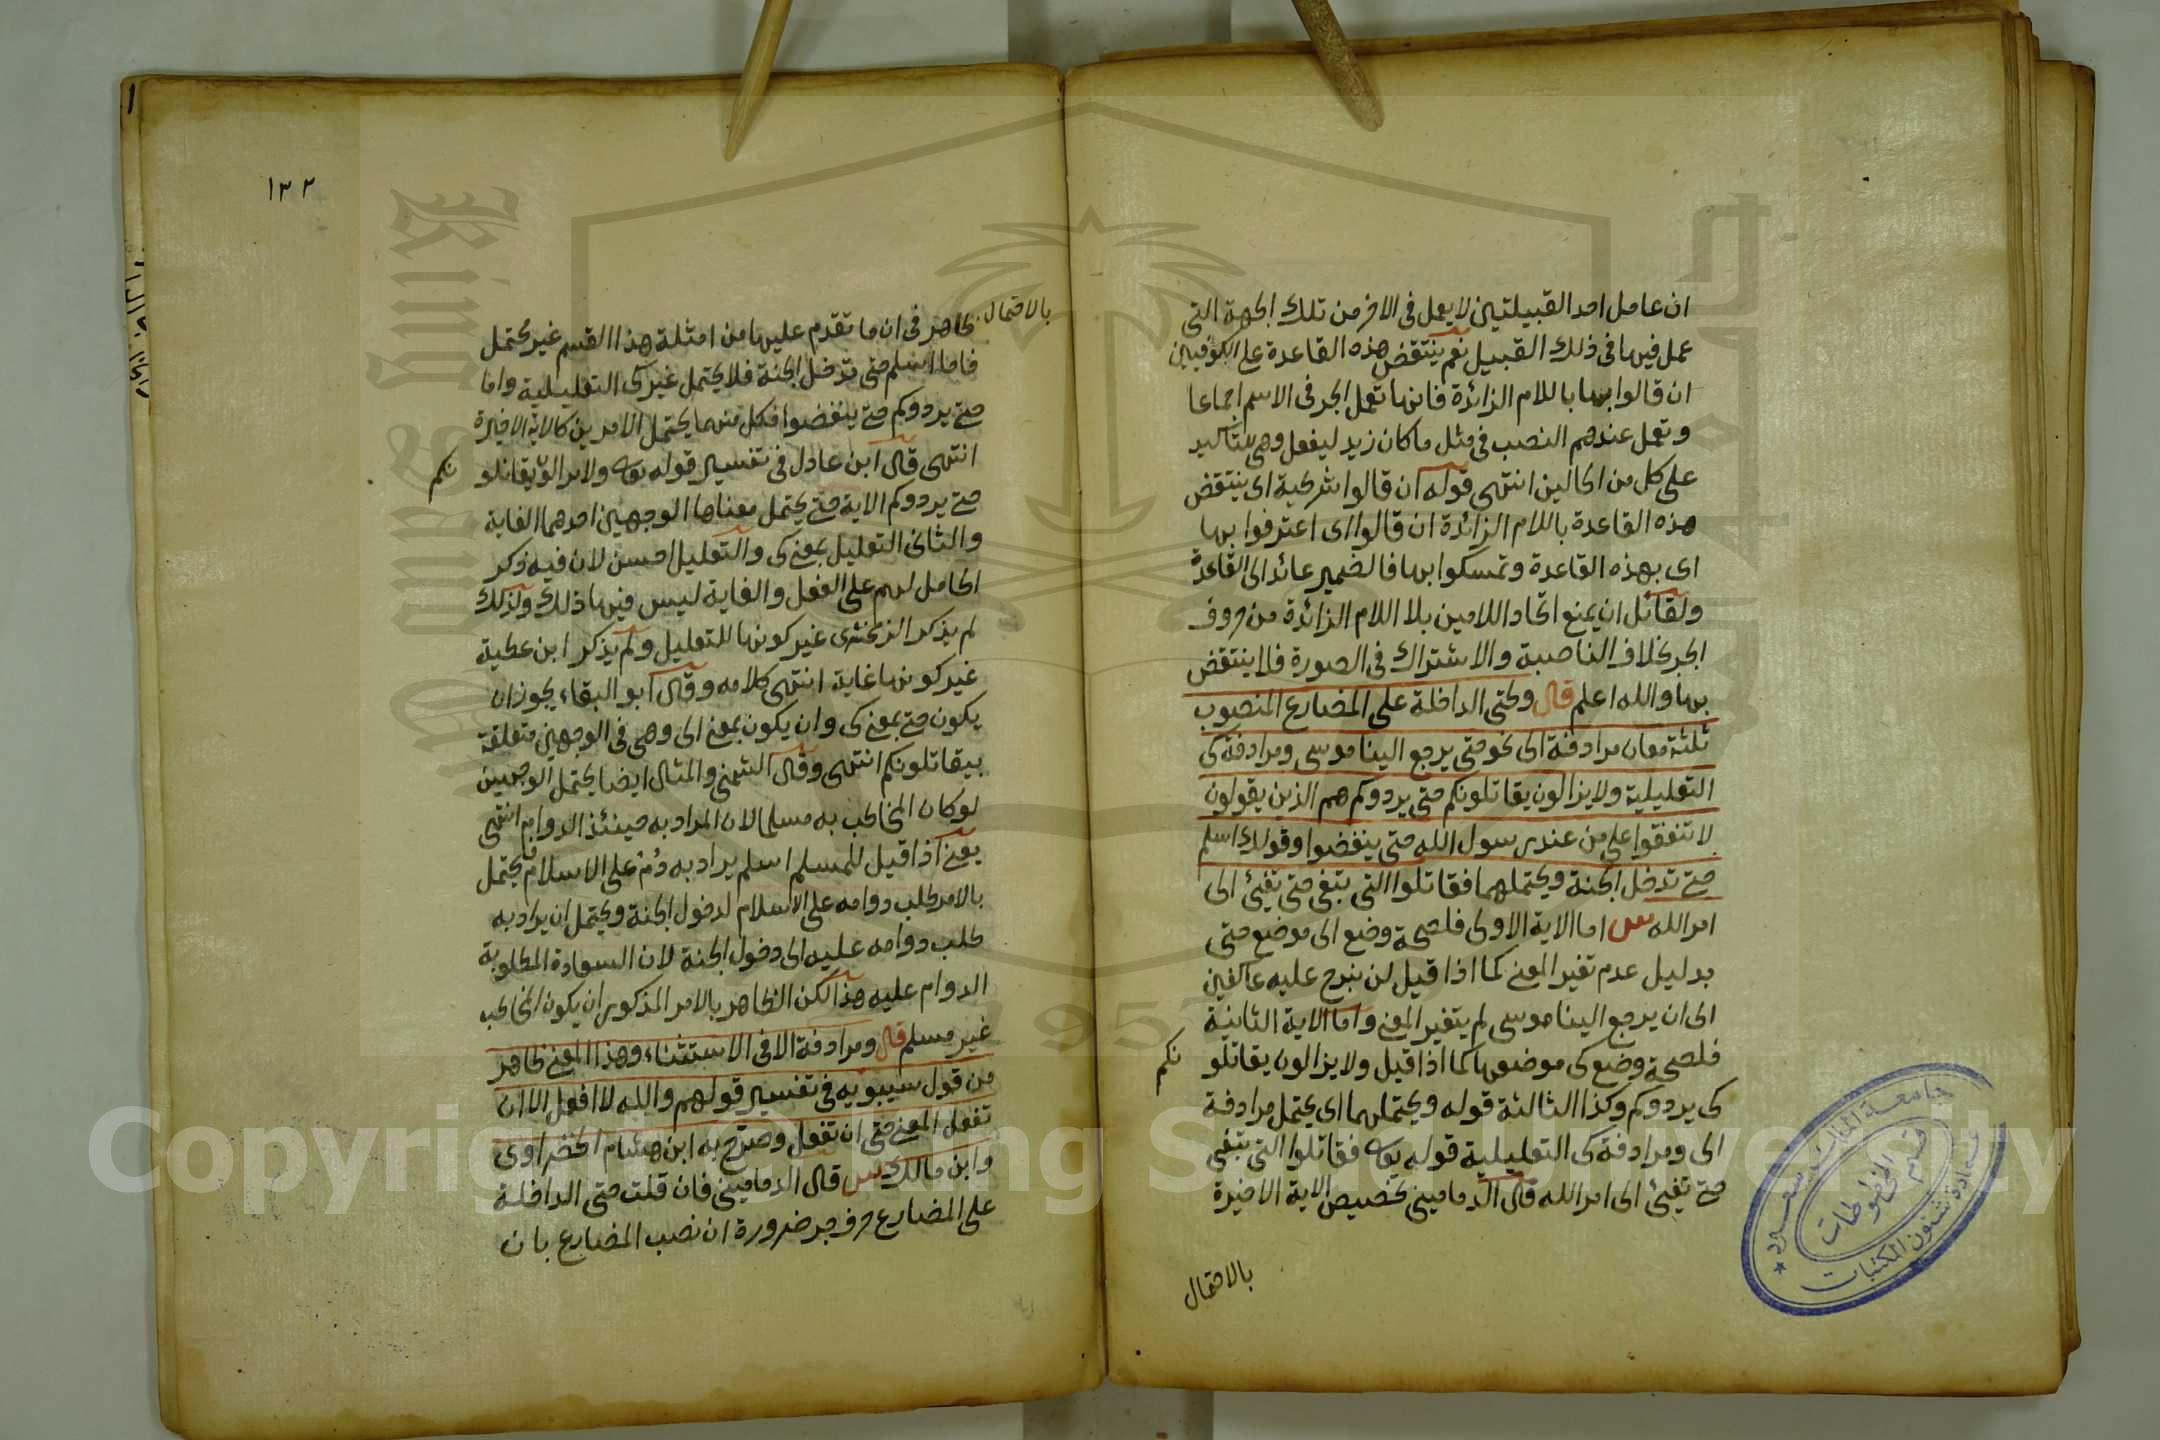 ان عامل احد القبيلتين لا يعمل فى الاخر من تلك الجهة التى
عمل فيها فى ذلك القبيل نعم ينتقض هذه القاعدة على الكوفيين
ان قالوا بها باللام الزائدة فانها تعمل الجر فى الاسم اجماعا
وتعمل عندهم النصب فى مثل ما كان زيد ليفعل وهى للتأكيد
على كل من الحالين انتهى قوله ان قالوا شرطية اى ينتقض
هذه القاعدة باللام الزائدة ان قالوا اى اعترفوا بها
اى بهذه القاعدة وتمسكوا بها فالضمير عائد الى القاعدة
ولقائل ان يمنع اتحاد اللامين بلا اللام الزائدة من حروف
الجر بخلاف الناصبة والاشتراك فى الصورة فلا ينتقض
بها والله اعلم قال ولحتى الداخلة على المضارع المنصوب
ثلثة معان مرادفة الى نحو حتى يرجع الينا موسى ومرادفة كى
التعليلية ولا يزالون يقاتلونكم حتى يردوكم هم الذين يقولون
لا تنفقوا على من عند رسول الله حتى ينفضوا وقولك اسلم
حتى تدخل الجنة ويحتملهما فقاتلوا التى تبغى حتى تفيئ الى
امر الله ش اما الاية الاولى فلصحة وضع الى موضع حتى
بدليل عدم تغير المعنى كما اذا قيل لن نبرح عليه عاكفين
الى ان يرجع الينا موسى لم يتغير المعنى واما الاية الثانية
فلصحة وضع كى موضعها كما اذا قيل ولا يزالون يقاتلو نكم
كى يردوكم وكذا الثالثة قوله ويحتملهما اى يحتمل مرادفة
الى ومرادفة كى التعليلية قوله تعالى فقاتلوا التى تبغى
حتى تفيئ الى امر الله قال الدمامينى تخصيص الاية الاخيرة
بالاحتمال
جامعة الملك سعود
عمادة شئون المكتبات
قسم المخطوطات
١٣٢
بالاحتمال ظاهر فى ان ما تقدم عليها من امثلة هذا القسم غير محتمل
فاما اسلم حتى تدخل الجنة فلا يحتمل غير كى التعليلية واما
حتى يردوكم حتى ينفضوا فكل منهما يحتمل الامرين كالاية الاخيرة
انتهى قال ابن عادل فى تفسير قوله تعالى ولا يزالون يقاتلو نكم
حتى يردوكم الاية حتى يحتمل معناها الوجهين احدهما الغاية
والثانى التعليل بمعنى كى والتعليل احسن لان فيه ذكر
الحامل لهم على الفعل والغاية ليس فيها ذلك ولذلك
لم يذكر الزمخشرى غير كونها للتعليل ولم يذكر ابن عطية
غير كونها غاية انتهى كلامه وقال ابو البقاء يجوز ان
يكون حتى بمعنى كى وان يكون بمعنى الى وهى فى الوجهين متعلقة
بيقاتلونكم انتهى وقال الشمنى والمثال ايضا يحتمل الوجهين
لو كان المخاطب به مسلما لان المراد به حينئذ الدوام انتهى
يعنى اذا قيل للمسلم اسلم يراد به دُم على الاسلام فيحتمل
بالامر طلب دوامه على الاسلام لدخول الجنة ويحتمل ان يراد به
طلب دوامه عليه الى دخول الجنة لان السعادة المطلوبة
الدوام عليه هذا لكن الظاهر بالامر المذكور ان يكون المخاطب
غير مسلم قال ومرادفة الا فى الاستثناء وهذا المعنى ظاهر
من قول سيبويه فى تفسير قولهم والله لا افعل الا ان
تفعل المعنى حتى ان تفعل وصرح به ابن هشام الخضراوى
وابن مالك ش قال الدمامينى فان قلت حتى الداخلة
على المضارع حرف جر ضرورة ان نصب المضارع بان
King Saud University
1957
Copyright © King Saud University